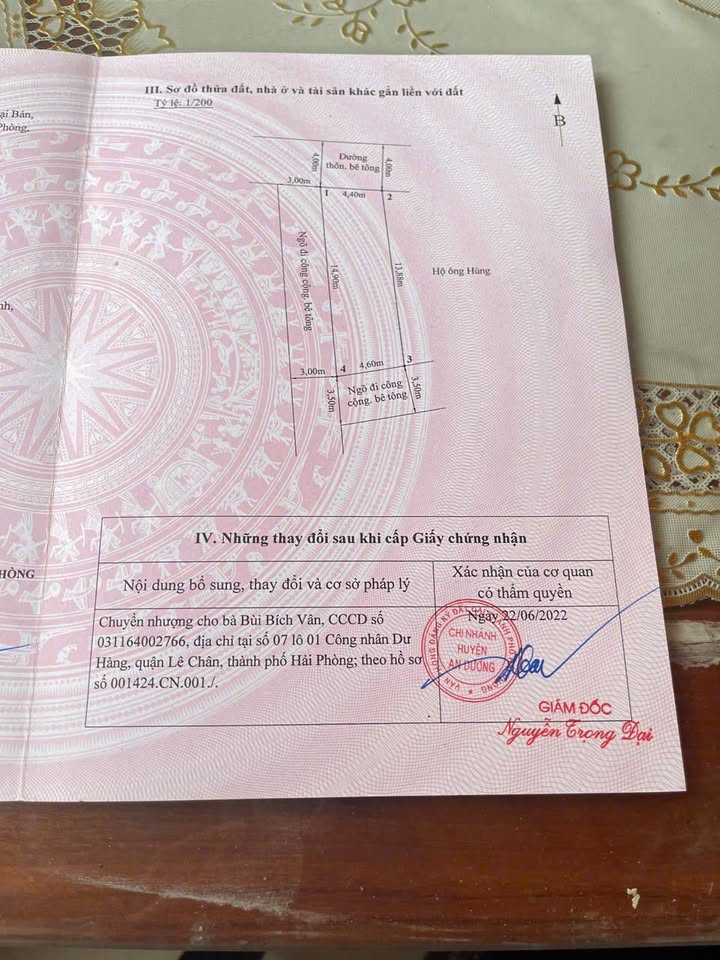 ại Bản,
Phòng.
nh,
HÒNG
III. Sơ đồ thửa đất, nhà ở và tài sản khác gắn liền với đất
Tỷ lệ: 1/200
B
4,00m
Đường
thôn, bê tông
4,00m
3,00m
1
4,40m
2
Ngõ đi công cộng, bê tông
14,90m
13,88m
Hộ ông Hùng
3,00m
4
4,60m
3
3,50m
Ngõ đi công
cộng, bê tông
3,50m
IV. Những thay đổi sau khi cấp Giấy chứng nhận
Nội dung bổ sung, thay đổi và cơ sở pháp lý
Xác nhận của cơ quan
có thẩm quyền
Chuyển nhượng cho bà Bùi Bích Vân, CCCD số
031164002766, địa chỉ tại số 07 lô 01 Công nhân Dư
Hàng, quận Lê Chân, thành phố Hải Phòng; theo hồ sơ
số 001424.CN.001./.
Ngày 22/06/2022
CHI NHÁNH
HUYỆN
AN DƯƠNG
GIÁM ĐỐC
Nguyễn Trọng Đại